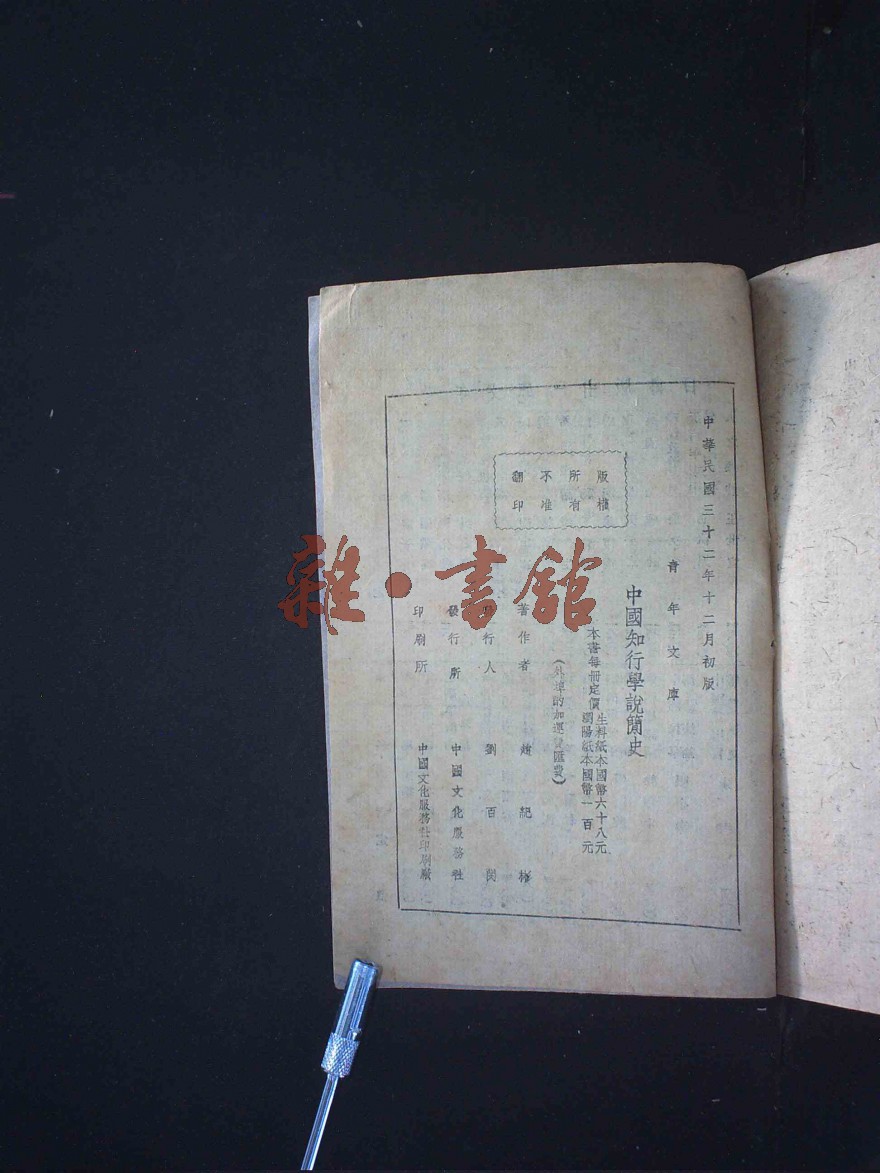 中華民國三十二年十二月初版
青年文庫
中國知行學說簡史
本書每冊定價
生料紙本國幣六十八元
瀏陽紙本國幣一百元
(外埠酌加運費匯費)
版權
所有
不准
翻印
著作者 趙紀彬
發行人 劉百閔
發行所 中國文化服務社
印刷所 中國文化服務社印刷廠
雜·書館